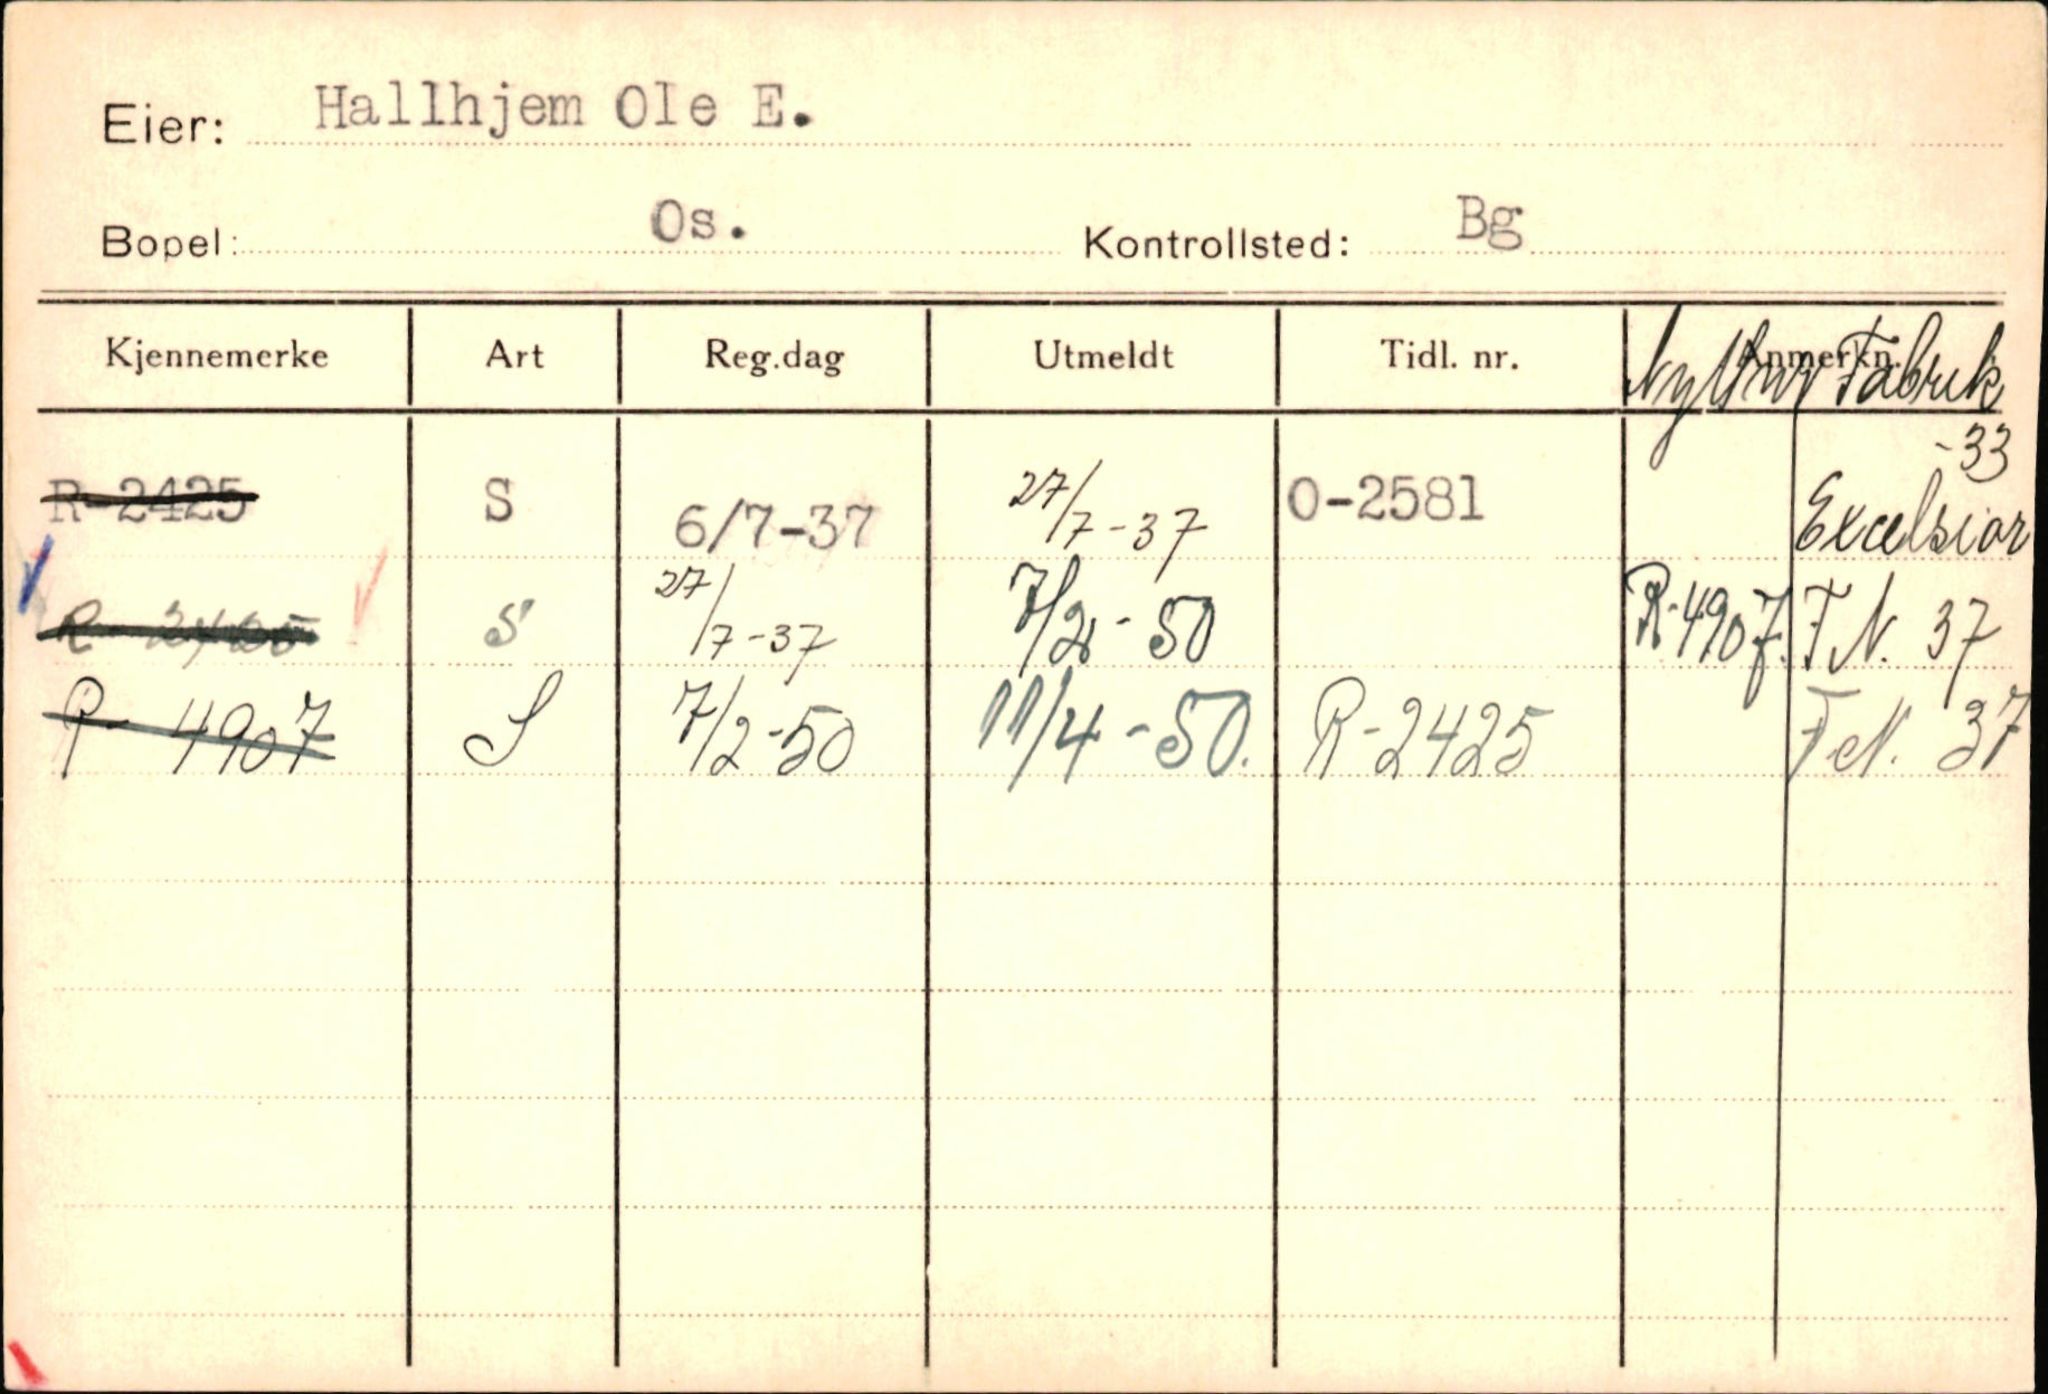 Eier: Hallhjem Ole E.
Bopel: Os. Kontrollsted: Bg
Kjennemerke Art Reg.dag Utmeldt Tidl. nr. Anmerkn.
Nytt nr Fabrik
R-2425 S 6/7-37 27/7-37 O-2581 -33 Excelsior
R-2425 S 27/7-37 7/2-50 R-4907. F.N. 37
R-4907 S 7/2-50 11/4-50. R-2425 F.N. 37